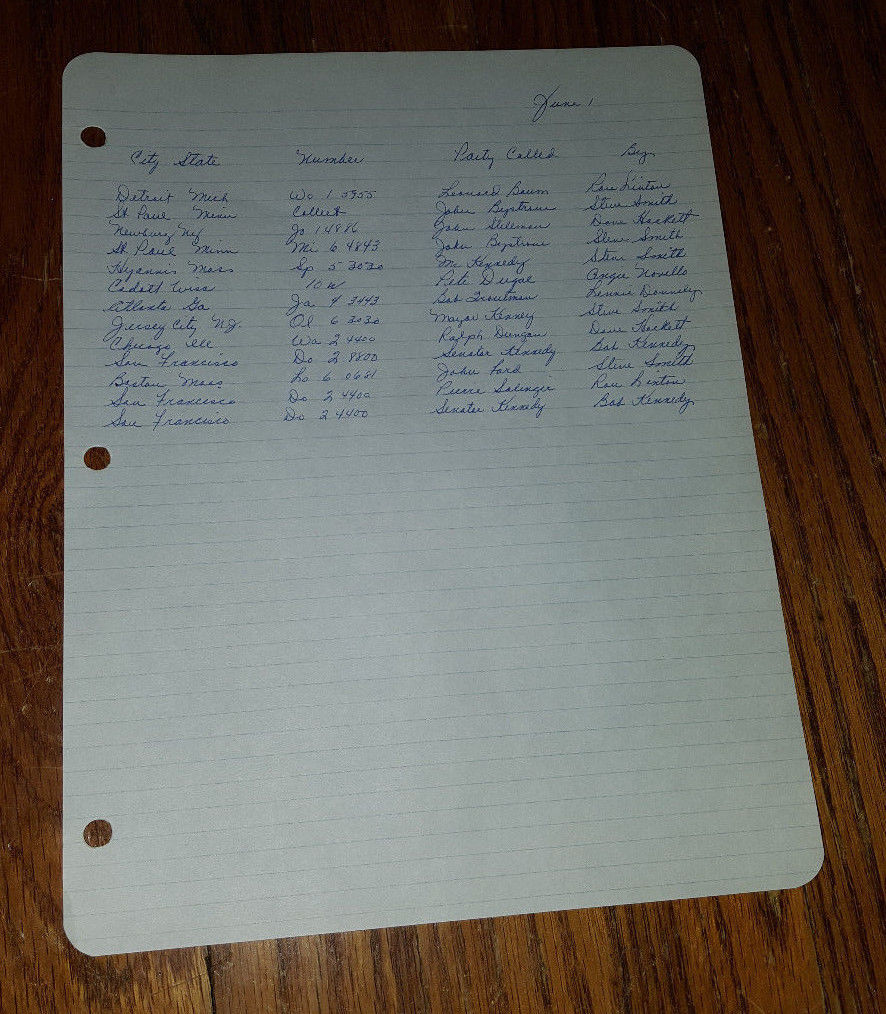 June 1
City State Number Party Called By
Detroit Mich Wo 1 5955 Leonard Baum Ron Linton
St Paul Minn Collect John Bystrom Steve Smith
Newburg NY Jo 1 4886 John Dave Hackett
St Paul Minn Mi 6 4843 John Bystrom Steve Smith
Hyannis Mass Sp 5 3030 Mr Kennedy Steve Smith
Cadott Wisc 10 W Pete Dugal Angie Novello
Atlanta Ga Ja 4 3443 Bob Troutman Lennie Donnelly
Jersey City N.J. Ol 6 3030 Mayor Kenney Steve Smith
Chicago Ill Wa 2 4400 Ralph Dungan Dave Hackett
San Francisco Do 2 8800 Senator Kennedy Bob Kennedy
Boston Mass. Lo 6 0681 John Ford Steve Smith
San Francisco Do 2 4400 Pierre Salinger Ron Linton
San Francisco Do 2 4400 Senator Kennedy Bob Kennedy